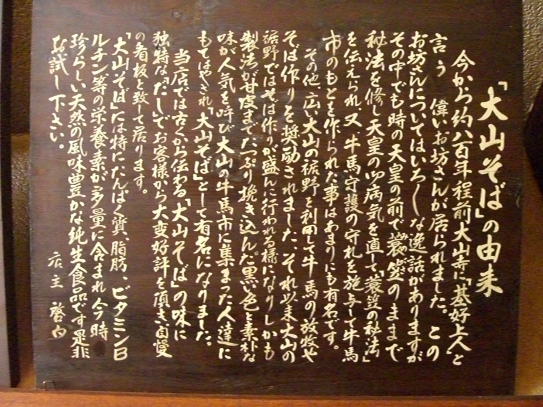 「大山そば」の由来
今から約八百年程前大山寺に「基好上人」と
言う 偉いお坊さんが居られました。この
お坊さんについてはいろいろな逸話がありますが
その中でも時の天皇の前で、蓑笠のままで
秘法を修し天皇の御病気を直して「蓑笠の秘法」
を伝えられ又、牛馬守護の守札を施与して牛馬
市のもとを作られた事はあまりにも有名です。
その他、広い大山の裾野を利用して牛馬の放牧や
そば作りを奨励されました。それ以来大山の
裾野ではそば作りが盛んに行われる様になりしかも
製法が甘皮までたっぷり挽き込んだ黒い色と素朴な
味が人気を呼び大山の牛馬市に集まった人達に
もてはやされ「大山そば」として有名になりました。
当店では古くから伝わる「大山そば」の味に
独特な「だし」でお客様から大変好評を頂き自慢
の看板と致して居ります。
「大山そば」には特にたんぱく質、脂肪、ビタミンB
ルチン等の栄養素が多量に含まれ今時
珍らしい天然の風味豊かな純生食品です是非
お試し下さい。
店主 啓白